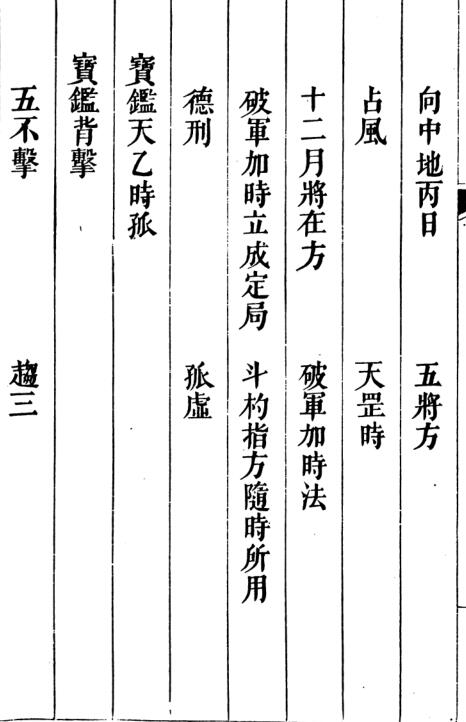 向中地丙日　五將方
占風　天罡時
十二月將在方　破軍加時法
破軍加時立成定局　斗杓指方隨時所用
德刑　孤虛
寶鑑天乙時孤
寶鑑背擊
五不擊　趨三